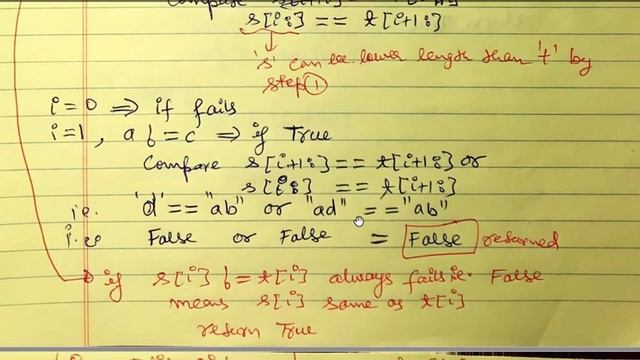 s[i:] == t[i+1:]
's' can be lower length than 't' by
step ①
i=0 ⇒ if fails
i=1, a b=c ⇒ if True
Compare s[i+1:] == t[i+1:] or
s[i:] == t[i+1:]
i.e. 'd' == "ab" or "ad" == "ab"
i.e. False or False = False returned
if s[i] b= t[i] always fails i.e. False
means s[i] same as t[i]
return True